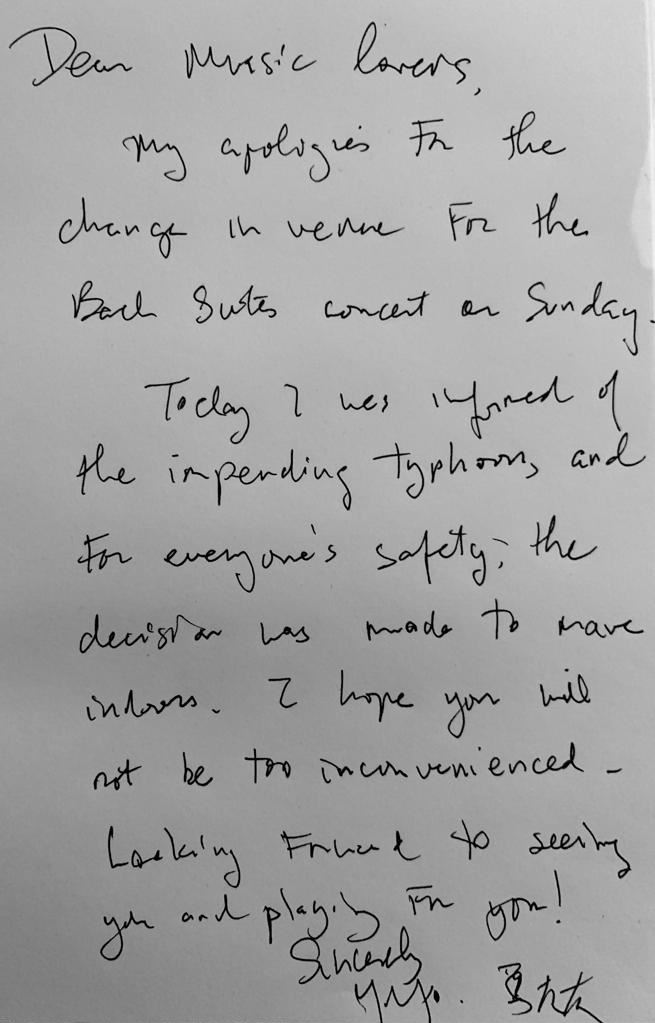 Dear Music lovers,
My apologies For the
change in venue For the
Bach Suites concert on Sunday.
Today I was informed of
the impending typhoon, and
For everyone's safety, the
decision was made to move
indoors. I hope you will
not be too inconvenienced -
Looking Forward to seeing
you and playing For you!
Sincerely
YoYo. 馬友友